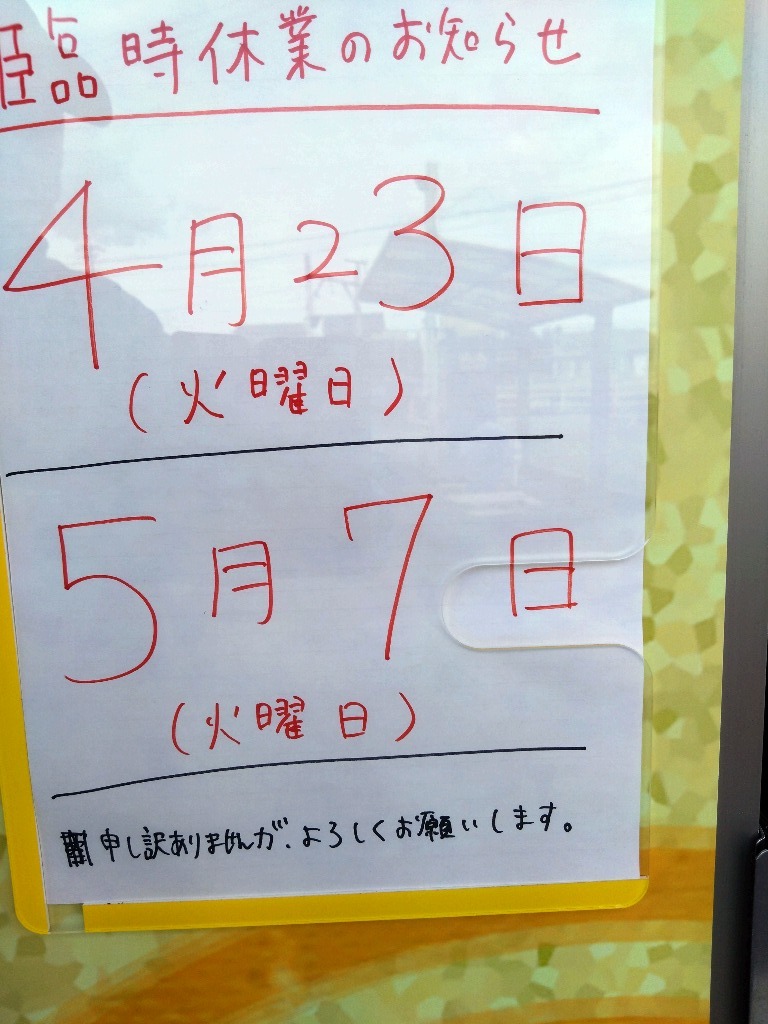 臨時休業のお知らせ
4月23日
(火曜日)
5月7日
(火曜日)
申し訳ありませんが、よろしくお願いします。